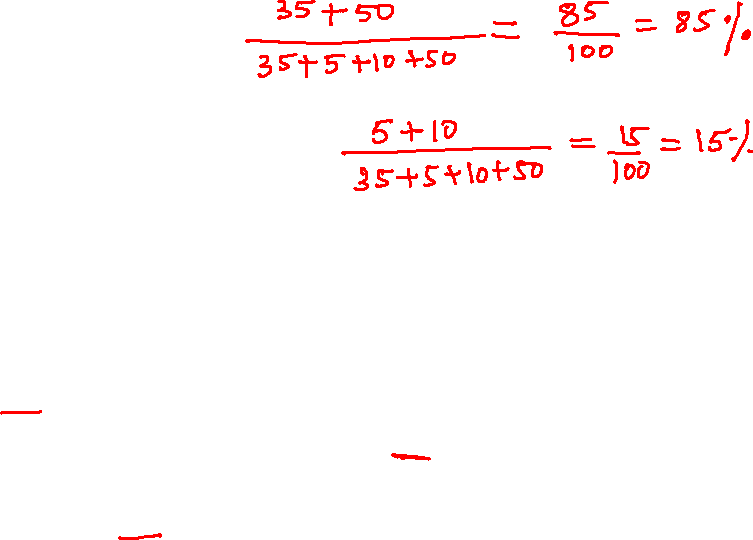 35+50 / 35+5+10+50 = 85/100 = 85%
5+10 / 35+5+10+50 = 15/100 = 15%